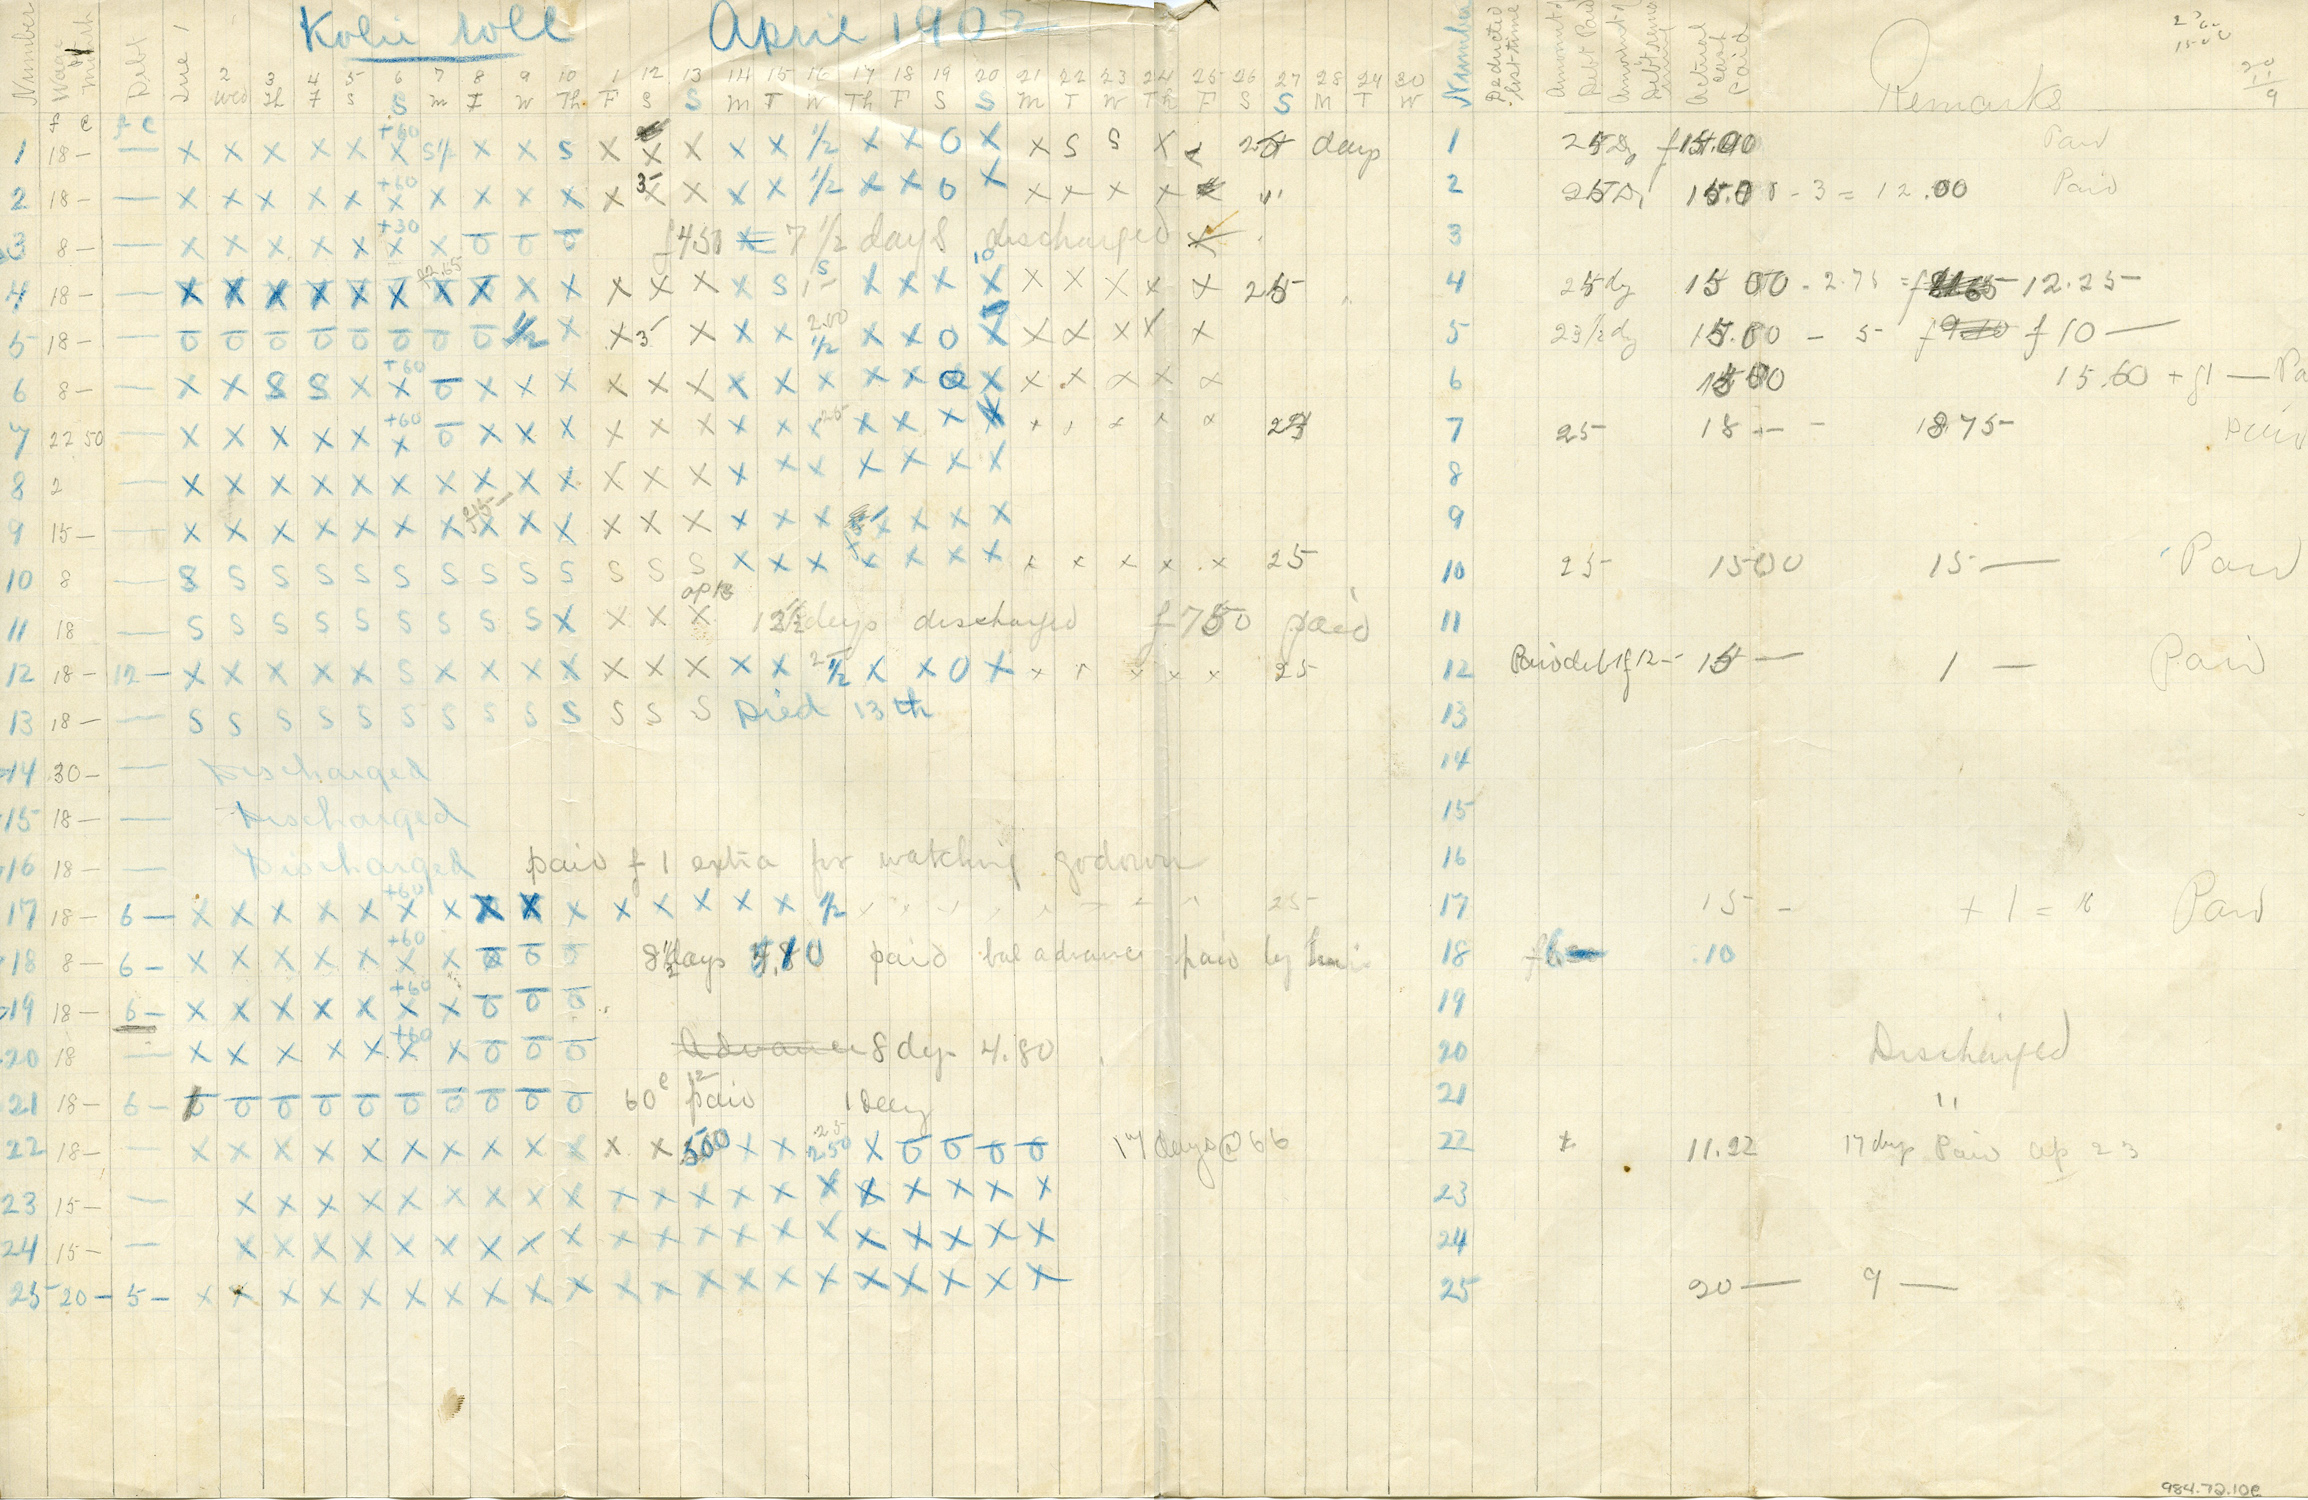 Kolie roll April 1902
Number Wage Debt Tue 1 2 Wed 3 Th 4 F 5 S 6 S 7 M 8 T 9 W 10 Th 1 F 12 S 13 S 14 M 15 T 16 W 17 Th 18 F 19 S 20 S 21 M 22 T 23 W 24 Th 25 F 26 S 27 S 28 M 29 T 30 W Number Deducted last time Amount Debt Paid Amount Debt Actual cash Paid Remarks
f c f c
+60
1 18 - — X X X X X X S½ X X S X X X X X ½ X X O X X S S X 25 days 1 25 Dy f15.00 Paid
+60
2 18 - — X X X X X X X X X X X 3 X X X X ½ X X O X X X X X " 2 25 Dy 15.00 - 3 = 12.00 Paid
+30
3 8 - — X X X X X X X O O O f450 = 7 ½ days discharged X 3
4 18 - — X X X X X X X X X X X X X X S X X X X X X X X X 25 4 25 dy 15 00 - 2.75 = 12.25
5 18 - — O O O O O O O O ½ X X 3 X X X 2.00 ½ X X O X X X X X X 5 23½ dy 15.00 - 5 f 10 —
+60
6 8 - — X X S S X X O X X X X X X X X X X X O X X X X X X 6 15 60 15.60 + f1 — Pa
+60
7 22 50 — X X X X X X O X X X X X X X X X X X X X X X X X X 7 25 18 - - 18 75 paid
8 2 — X X X X X X X X X X X X X X X X X X X X 8
f15 -
9 15 - — X X X X X X X X X X X X X X X X X X X 9
10 8 — S S S S S S S S S S S S S X X X X X X X X X X X X 25 10 25 1500 15 — Paid
ap 13
11 18 — S S S S S S S S S X X X X 12½ days discharged f 750 paid 11
12 18 - 12 - X X X X X S X X X X X X X X X ½ X X O X X X X X X 25 12 Paid debt f 12 - 15 — 1 — Paid
13 18 - — S S S S S S S S S S S S S Died 13th 13
14 30 - — Discharged 14
15 18 - — Discharged 15
16 18 - — Discharged paid f 1 extra for watching godown 16
+60
17 18 - 6 - X X X X X X X X X X X X X X X ½ 25 17 15 - + 1 = 16 Paid
+60
18 8 - 6 - X X X X X X X O O O 8½ days paid bal advance paid by 18 .10
+60
19 18 - 6 - X X X X X X X O O O 19
+60
20 18 — X X X X X X X O O O Advance 8 dys 4.80 20 Discharged
21 18 - 6 - O O O O O O O O O O 60 c paid 1 Day 21 "
22 18 - — X X X X X X X X X X X X 500 X X 250 X O O O O 17 days @ 66 22 11.22 17 dys Paid ap 23
23 15 - — X X X X X X X X X X X X X X X X X X X X 23
24 15 - — X X X X X X X X X X X X X X X X X X X X 24
25 20 - 5 - X X X X X X X X X X X X X X X X X X X X X 25 20 — 9 —
984.72.10e